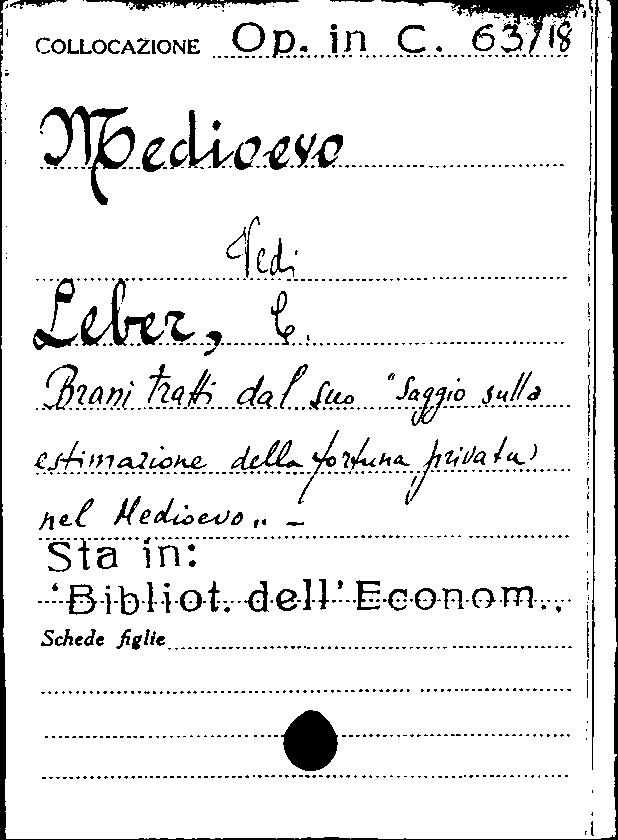 COLLOCAZIONE Op. in C. 63/18
Medioevo
Vedi
Leber, C.
Brani tratti dal suo "Saggio sulla
estimazione della fortuna privata
nel Medioevo„ –
Sta in:
'Bibliot. dell' Econom.,
Schede figlie